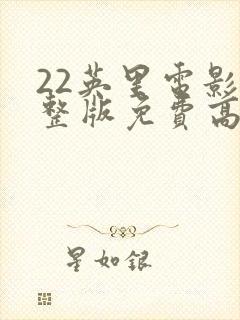 22英里电影
整版免費高
星如銀